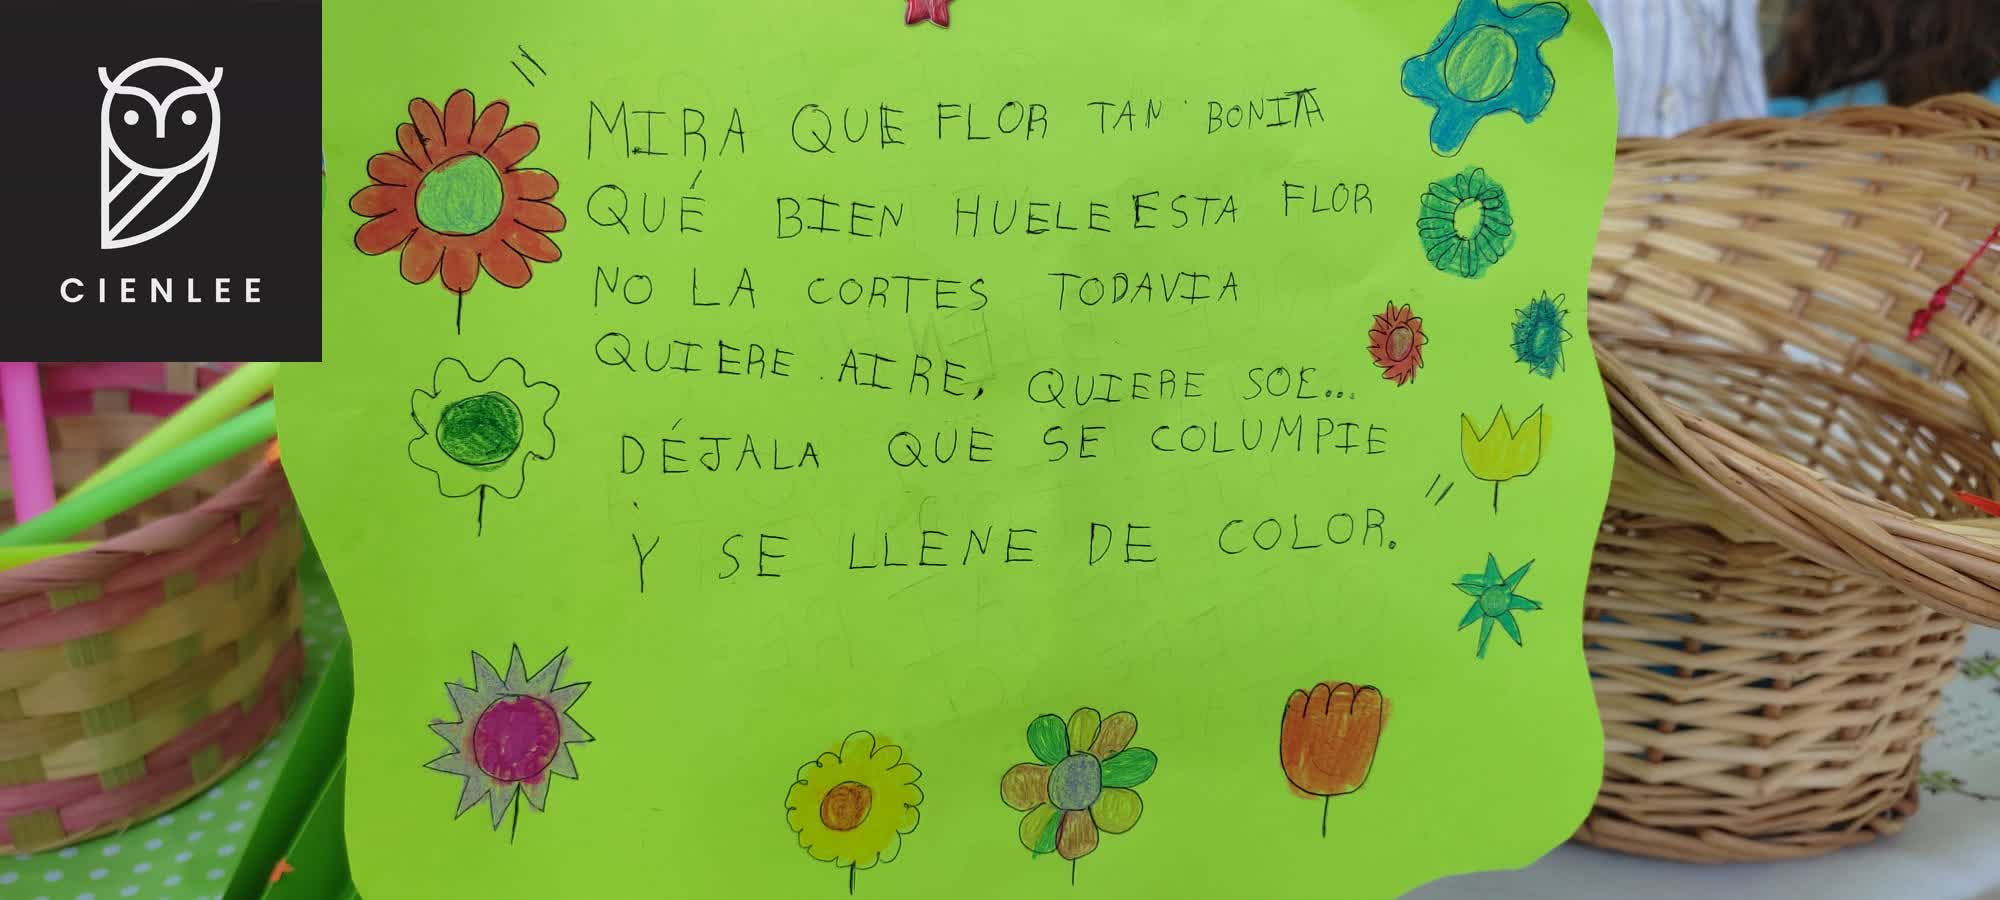 CIENLEE
" MIRA QUE FLOR TAN BONITA
QUÉ BIEN HUELE ESTA FLOR
NO LA CORTES TODAVIA
QUIERE AIRE, QUIERE SOL...
DÉJALA QUE SE COLUMPIE
Y SE LLENE DE COLOR. "